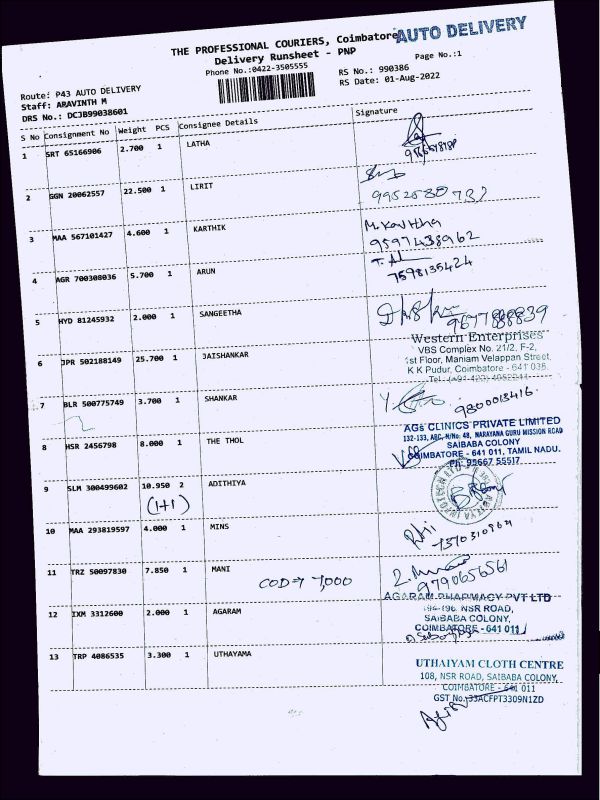 AUTO DELIVERY
THE PROFESSIONAL COURIERS, Coimbatore
Delivery Runsheet - PNP
Phone No.:0422-3505555
Page No.:1
RS No.: 990386
RS Date: 01-Aug-2022
Route: P43 AUTO DELIVERY
Staff: ARAVINTH M
DRS No.: DCJB99038601
S No Consignment No Weight PCS Consignee Details Signature
1 SRT 65166906 2.700 1 LATHA
2 GGN 20062557 22.500 1 LIRIT
3 MAA 567101427 4.600 1 KARTHIK M. Kavitha
9597438962
4 AGR 700308036 5.700 1 ARUN
7598135424
5 HYD 81245932 2.000 1 SANGEETHA
Western Enterprises
VBS Complex No. 21/2, F-2,
1st Floor, Maniam Velappan Street,
K K Pudur, Coimbatore - 641 038.
6 JPR 502188149 25.700 1 JAISHANKAR
7 BLR 500775749 3.700 1 SHANKAR
9800013416
AGs CLINICS PRIVATE LIMITED
132-133, ABC, N/No: 48, NARAYANA GURU MISSION ROAD
SAIBABA COLONY
COIMBATORE - 641 011, TAMIL NADU.
Ph: 95667 55517
8 HSR 2456798 8.000 1 THE THOL
9 SLM 300499602 10.950 2 ADITHIYA
(1+1)
10 MAA 293819597 4.000 1 MINS
7370310964
11 TRZ 50097830 7.850 1 MANI
COD 7,000
9790656561
AGARAM PHARMACY PVT LTD
194-196, NSR ROAD,
SAIBABA COLONY,
COIMBATORE - 641 011
12 IXM 3312600 2.000 1 AGARAM
13 TRP 4086535 3.300 1 UTHAYAMA
UTHAIYAM CLOTH CENTRE
108, NSR ROAD, SAIBABA COLONY,
COIMBATORE - 641 011
GST No.:33ACFPT3309N1ZD